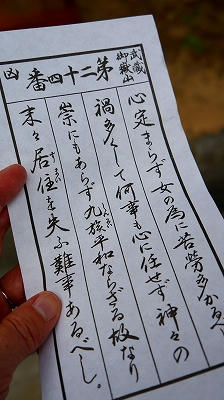 武蔵
御嶽山
第二十四番
凶
心定まらず女の為に苦労多かるべ
禍多くして何事も心に任せず神々の
祟にもあらず九族平和ならざる故なり
末々居住を失ふ難事あるべし。